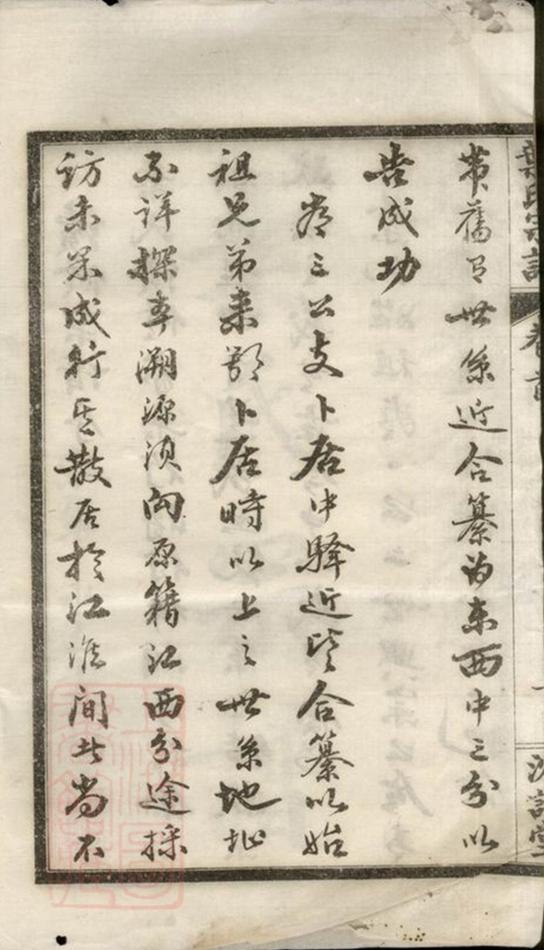 氏宗譜
卷首
帶舊有世系近合纂為東西中三分以
告成功
三公支卜居中驛近合纂以始
祖兄弟來鄂卜居時以上之世系地址
不詳探本溯源須向原籍江西分途採
訪未果成行其散居於江淮間者尚不